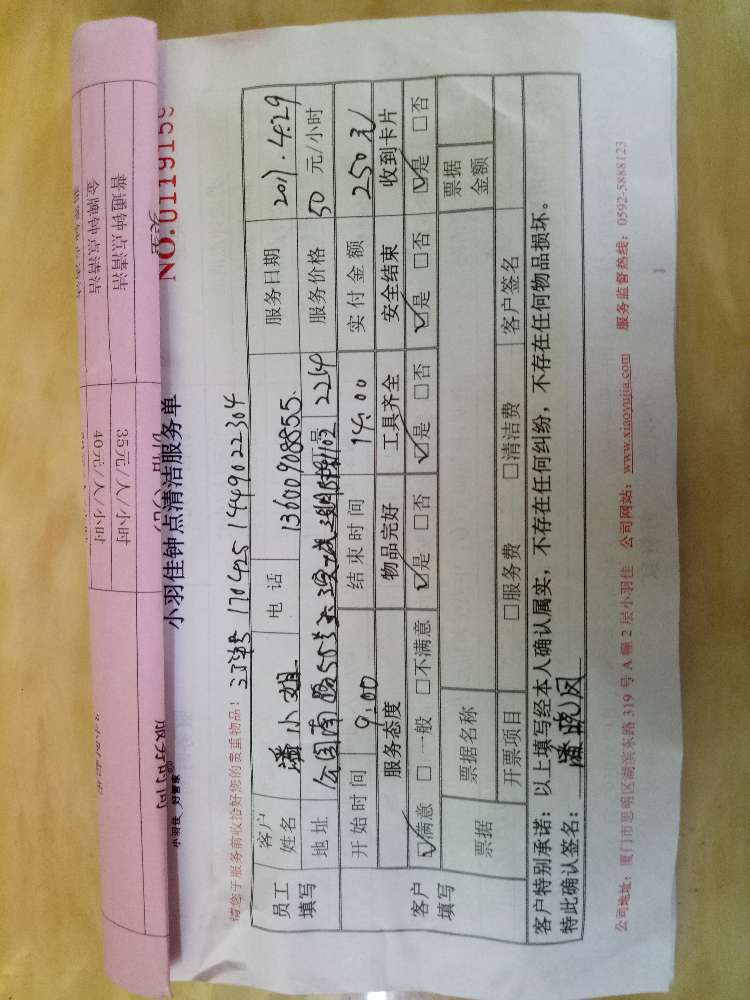 普通钟点清洁 35元/人/小时
金牌钟点清洁 40元/人/小时
服务时间
小羽佳 好管家
小羽佳钟点清洁服务单
NO.0119159
请您于服务前收拾好您的贵重物品！
170425 1449022304
员工填写
客户姓名 潘小姐 电话 13600908855 服务日期 2017.4.29
地址 服务价格 50 元/小时
开始时间 9:00 结束时间 14:00 实付金额 250元
客户填写
服务态度 物品完好 工具齐全 安全结束 收到卡片
☑满意 □一般 □不满意 ☑是 □否 ☑是 □否 ☑是 □否 ☑是 □否
票据 票据名称 票据金额
开票项目 □服务费 □清洁费 客户签名
客户特别承诺：以上填写经本人确认属实，不存在任何纠纷，不存在任何物品损坏。
特此确认签名：潘晓凤
公司地址：厦门市思明区湖滨东路 319 号 A 幢 2 层小羽佳 公司网站：www.xiaoyujia.com 服务监督热线：0592-5888123
1